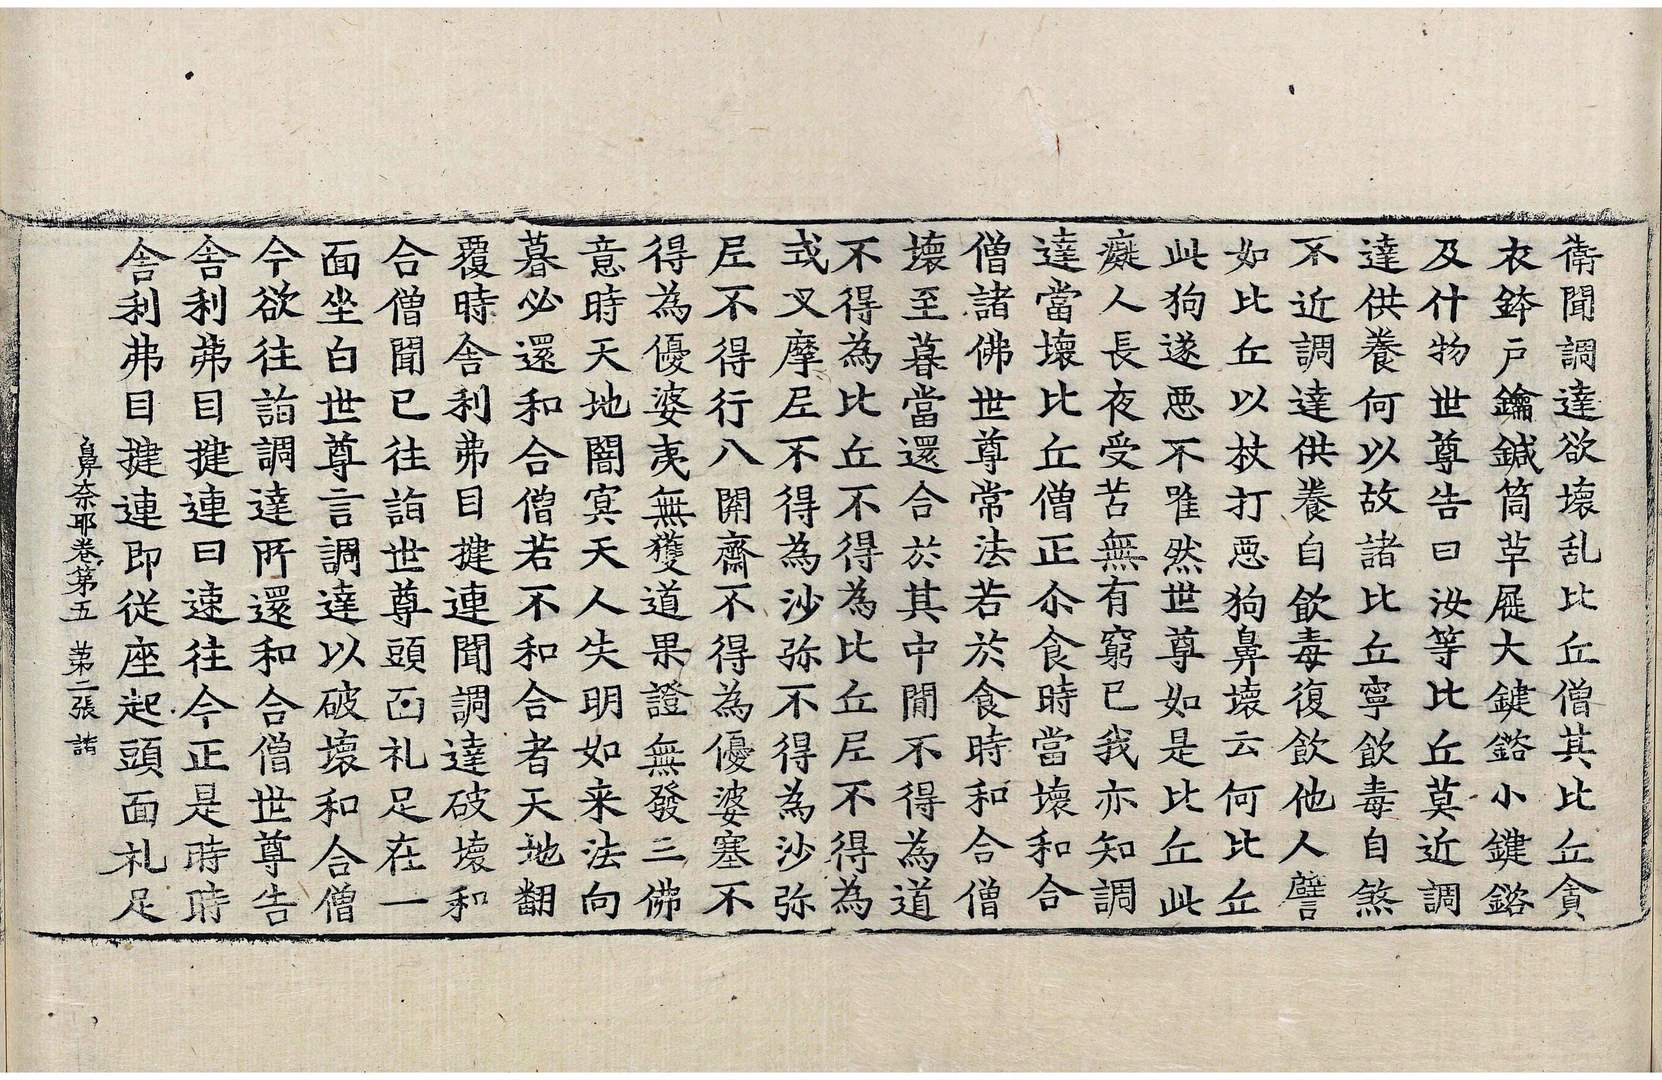 衛聞調達欲壞乱比丘僧其比丘貪
衣鉢戶鑰鍼筒草屣大鍵鎔小鍵鎔
及什物世尊告曰汝等比丘莫近調
達供養何以故諸比丘寧飲毒自煞
不近調達供養自飲毒復飲他人譬
如比丘以杖打惡狗鼻壞云何比丘
此狗遂惡不唯然世尊如是比丘此
癡人長夜受苦無有窮已我亦知調
達當壞比丘僧正尒食時當壞和合
僧諸佛世尊常法若於食時和合僧
壞至暮當還合於其中間不得為道
不得為比丘不得為比丘尼不得為
式叉摩尼不得為沙弥不得為沙弥
尼不得行八關齋不得為優婆塞不
得為優婆夷無獲道果證無發三佛
意時天地闇冥天人失明如来法向
暮必還和合僧若不和合者天地翻
覆時舍利弗目揵連聞調達破壞和
合僧聞已往詣世尊頭面礼足在一
面坐白世尊言調達以破壞和合僧
今欲往詣調達所還和合僧世尊告
舍利弗目揵連曰速往今正是時時
舍利弗目揵連即從座起頭面礼足
鼻奈耶卷第五 第二張 詩